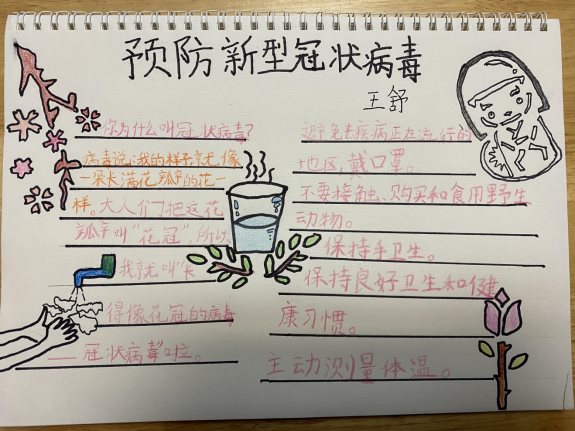 预防新型冠状病毒
王舒
你为什么叫冠状病毒?
病毒说:我的样子就像
一朵长满花瓣的花一
样。大人们把这花
瓣叫“花冠”,所以
我就叫“长
得像花冠的病毒
——冠状病毒”啦。
避免去疾病正在流行的
地区,戴口罩。
不要接触、购买和食用野生
动物。
保持手卫生。
保持良好卫生和健
康习惯。
主动测量体温。